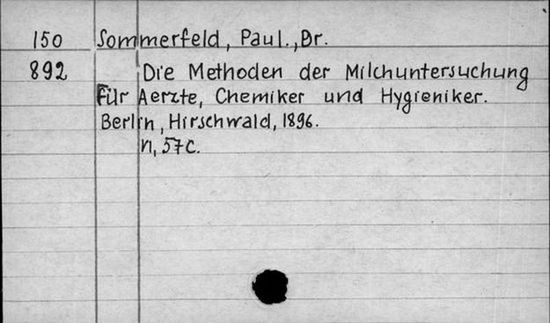 150 Sommerfeld, Paul., Dr.
892 Die Methoden der Milchuntersuchung
Für Aerzte, Chemiker und Hygieniker.
Berlin, Hirschwald, 1896.
n, 57c.